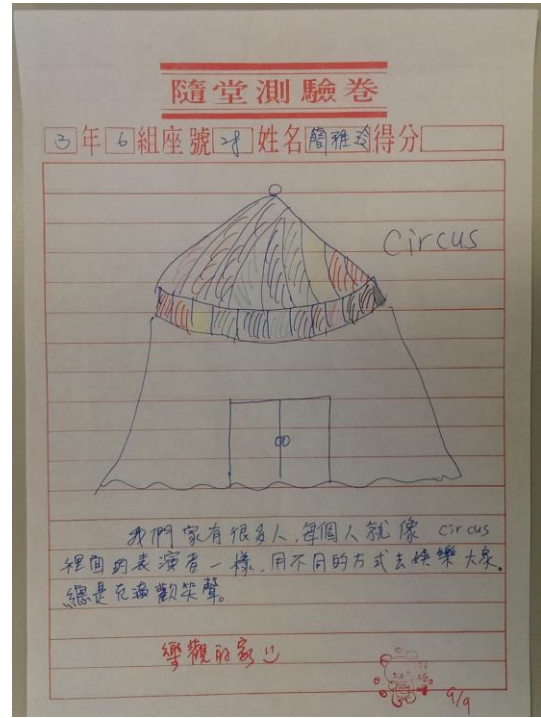 隨堂測驗卷
3年6組座號28姓名簡雅玲得分
Circus
我們家有很多人,每個人就像 circus
裡面的表演者一樣,用不同的方式去娛樂大眾。
總是充滿歡笑聲。
樂觀的家
9/9